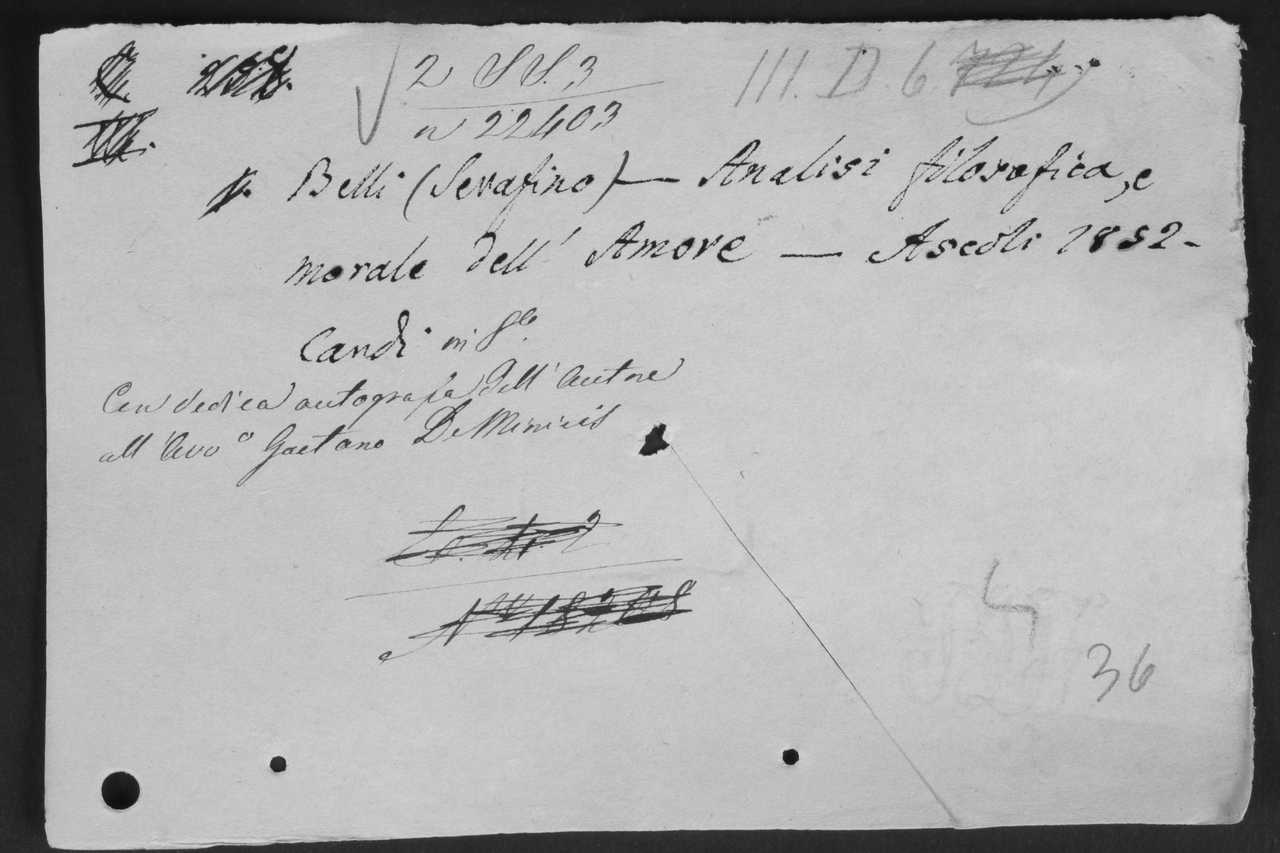 2 SS. 3 III. D. 6.
n 22403
Belli (Serafino) — Analisi filosofica, e
morale dell' Amore — Ascoli 1852 -
Cardi in 8º.
Con dedica autografa dell' Autore
all' Avvº Gaetano De Minicis
36